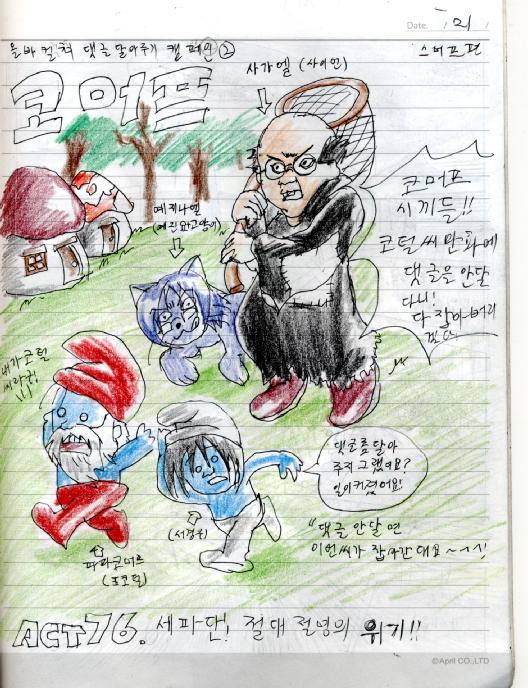 Date. 21
올바 컬쳐 댓글 달아주기 캠페인 ②
스머프편
코머프
사가엘 (사이언)
예지나엘
코머프
시끼들!!
코털씨 만화에
댓글을 안달
다니!
다 잡아버리
내가 코털
씨라구!
댓글좀 달아
주지 그랬어요?
일이 커졌어요!
(서경우)
"댓글 안달면
이언씨가 잡아간대요~
파파코머프
(코코털)
ACT76. 세파단! 절대 절명의 위기!!
©April CO.,LTD